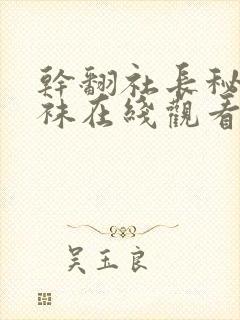 幹翻社長秘
袜在綫觀看
吴玉良